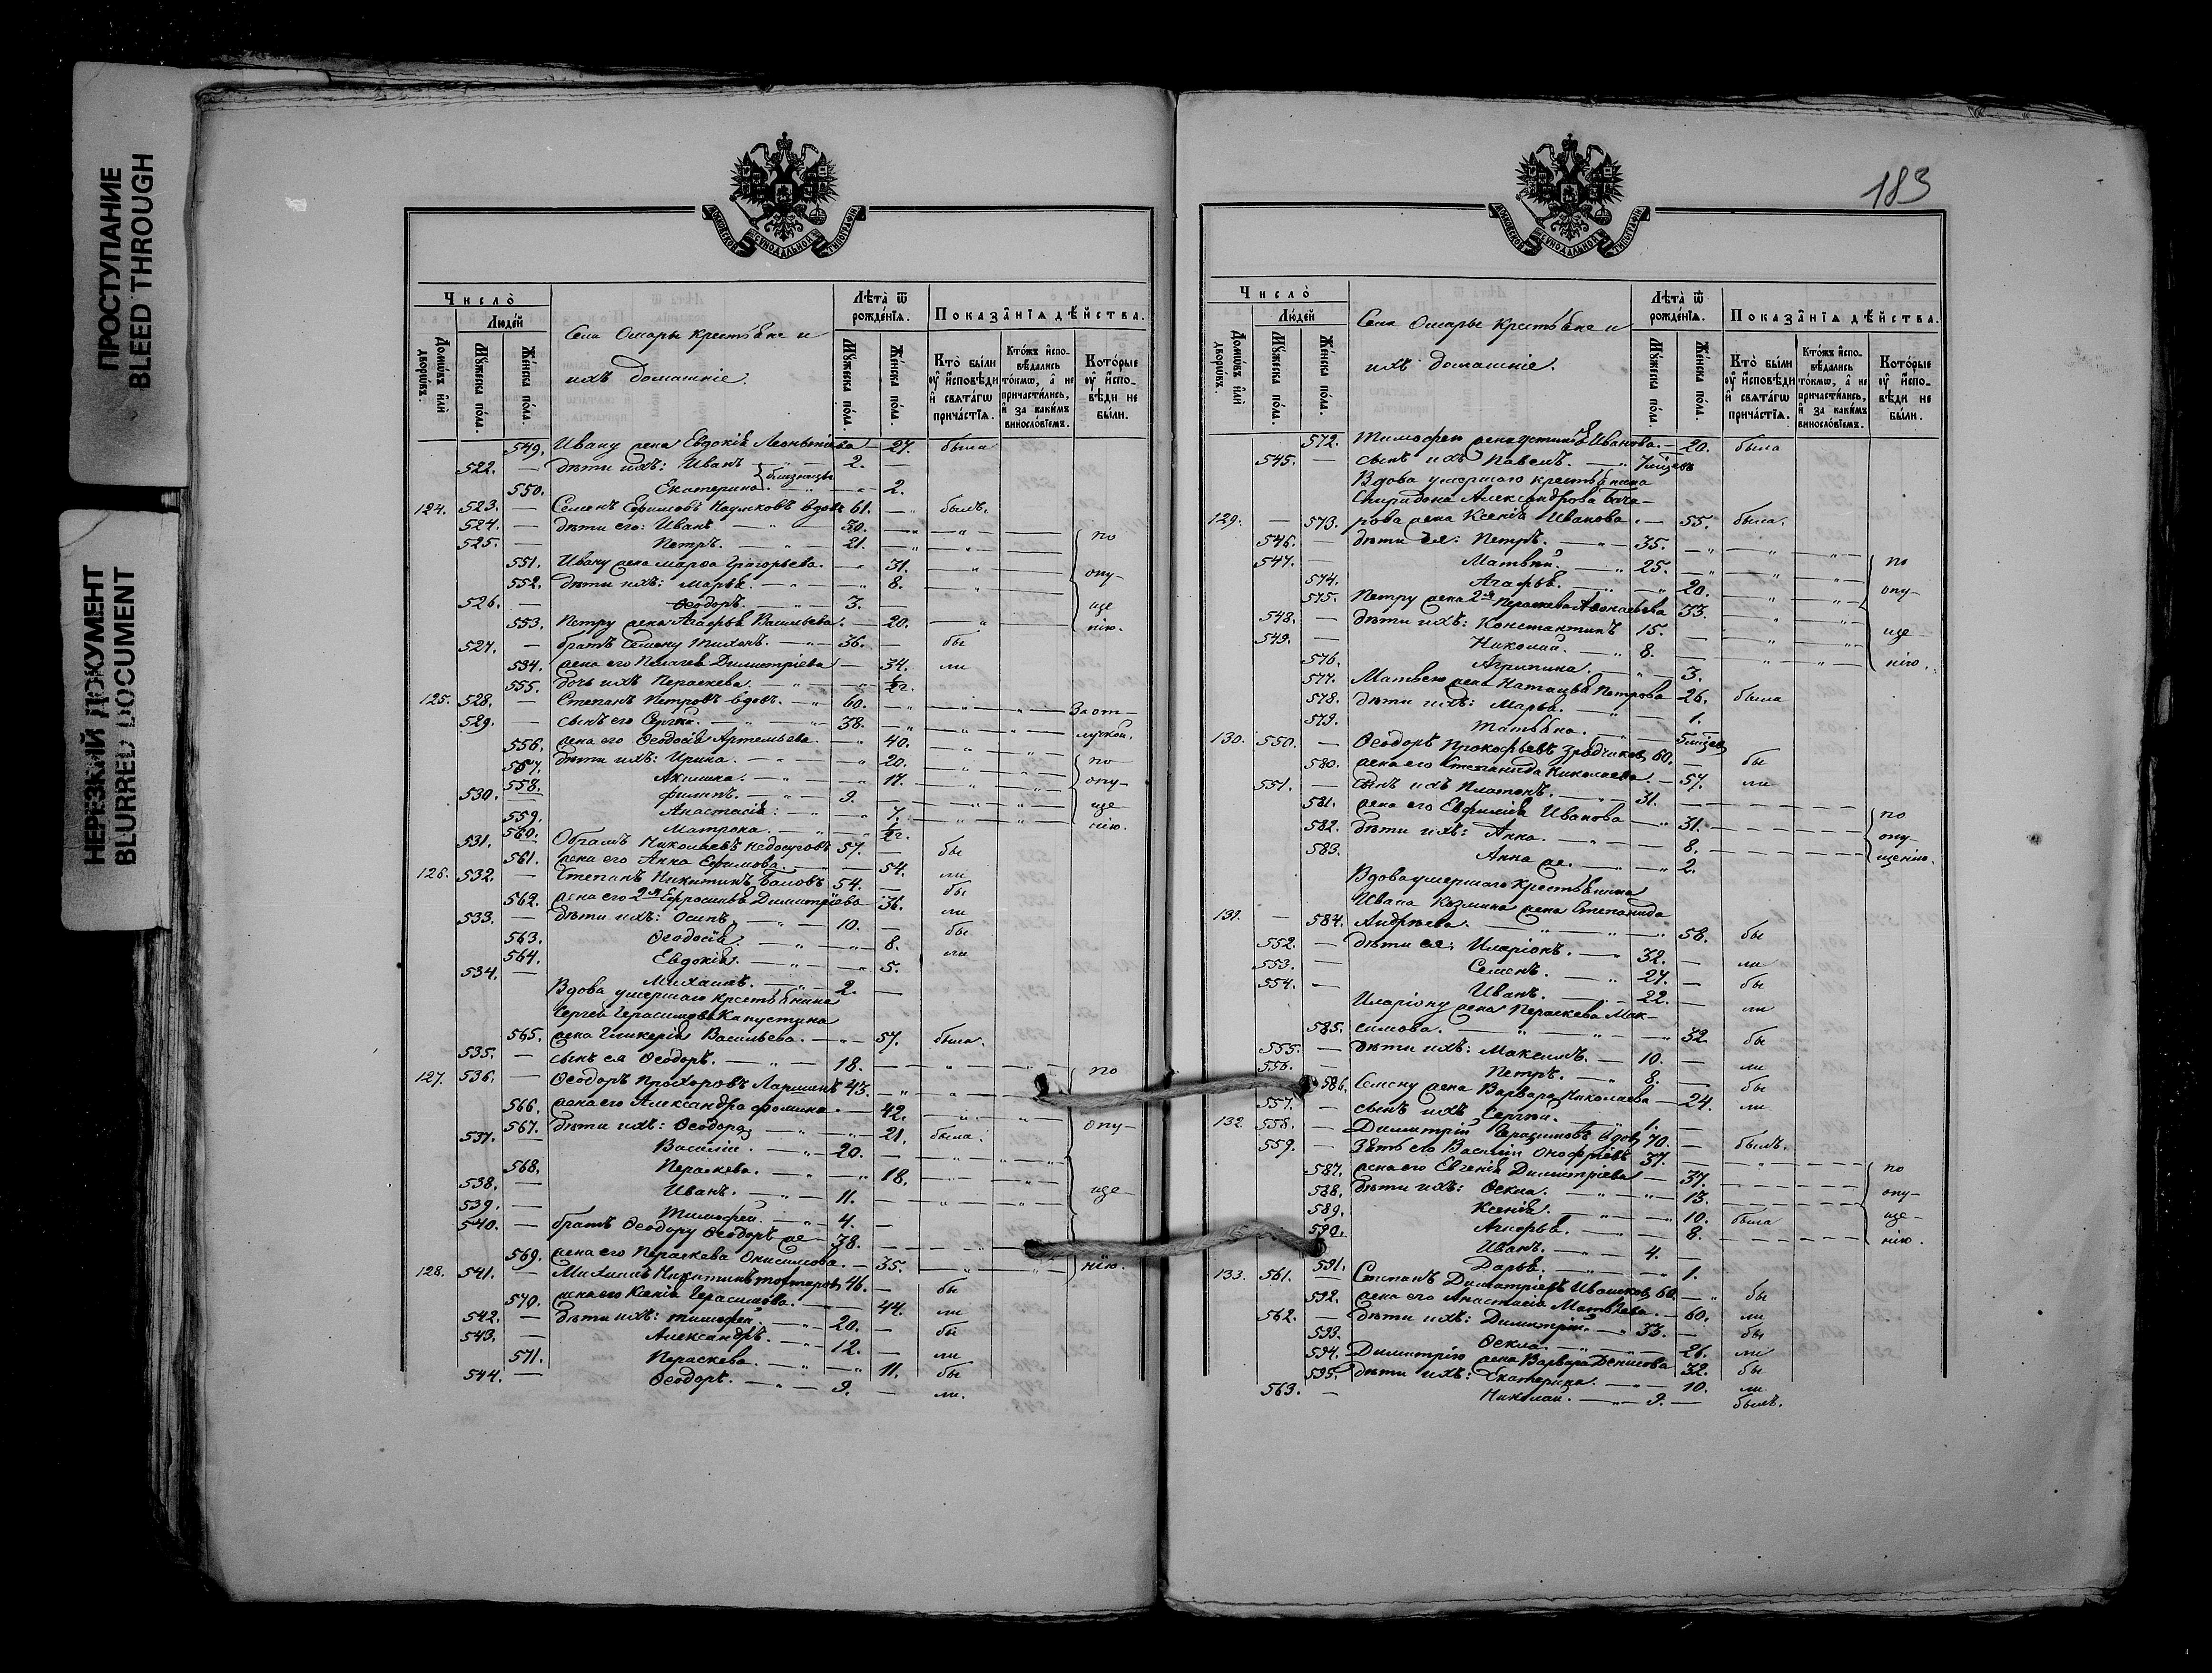 ПРОСТУПАНИЕ
BLEED THROUGH
НЕРЕЗКИЙ ДОКУМЕНТ
BLURRED DOCUMENT
МОСКОВСКОЙ СУНОДАЛЬНОЙ ТИПОГРАФІИ
Число̀
Людей
Домѡвъ или дворѡвъ.
Мꙋжеска пола.
Женска пола.
Села Омары крестьяне и
ихъ домашніе.
Лѣта ѿ рожденїѧ.
Мꙋжеска пола.
Женска пола.
Показанїѧ дѣйства.
Кто были оу исповѣди и свѧтагѡ причастїѧ.
Ктожъ исповѣдались токмѡ, а не причастились, и за какимъ винословїемъ.
Которые оу исповѣди не были.
549. Ивану жена Евдокія Леонтьева — 27. была
522. — дѣти ихъ: Иванъ 2. —
550. Екатерина близнецы — 2.
124. 523. — Семенъ Ефимовъ Наумковъ вдовъ 61. — былъ.
524. — дѣти его: Иванъ 30. —
525. — Петръ. 21. — по
551. Ивану жена Марѳа Григорьева. — 31.
552. дѣти ихъ: Марья. — 8. опу-
526. — Ѳеодоръ. 3. — ще
553. Петру жена Агафья Васильева. — 20. нію.
527. — братъ Семену Тихонъ. 36. — бы
534. жена его Пелагея Димитріева — 34. ли
555. дочь ихъ Параскева. — 1/2г.
125. 528. — Степанъ Петровъ вдовъ. 60. — За от-
529. — сынъ его Сергѣй. 38. — лучкой.
556. жена его Ѳеодосія Артемьева. 40.
557. дѣти ихъ: Ирина. 20. по
558. Акилина. 17. опу-
530. — Филипъ. 9. — ще
559. Анастасія. 7. нію.
560. Матрона. 1/2г.
531. — Абрамъ Николаевъ 57. — бы
561. жена его Анна Ефимова. 54. ли
126. 532. — Степанъ Никитинъ 54. — бы
562. жена его 2я Ефросинья Димитріева 36. ли
533. — дѣти ихъ: Осипъ. 10. — бы
563. Ѳеодосія. 8. ли
564. Евдокія. 5.
534. — Михаилъ. 2. —
Вдова умершаго крестьянина
Сергея Герасимова Капустина
565. жена Гликерія Васильева. — 57. была.
535. — сынъ ея Ѳеодоръ. 18. — по
127. 536. — Ѳеодоръ Прохоровъ Ларшинъ 43. —
566. жена его Александра Фомина. — 42. опу-
567. дѣти ихъ: Ѳеодора 21. была.
537. — Василій. 20. —
568. Параскева. 18.
538. — Иванъ. 11. ще
539. — Тимофей. 4. —
540. — братъ Ѳеодору Ѳеодоръ же 38.
569. жена его Параскева Онисимова. — 35. нію.
128. 541. — Михаилъ Никитинъ 46. — бы
570. жена его Ксенія Герасимова. 44. ли
542. — дѣти ихъ: Тимофей. 20. — бы
543. — Александръ. 12. — ли
571. Параскева. 11. бы
544. — Ѳеодоръ. 9. — ли.
183
МОСКОВСКОЙ СУНОДАЛЬНОЙ ТИПОГРАФІИ
Число̀
Людей
Домѡвъ или дворѡвъ.
Мꙋжеска пола.
Женска пола.
Села Омары крестьяне и
ихъ домашніе.
Лѣта ѿ рожденїѧ.
Мꙋжеска пола.
Женска пола.
Показанїѧ дѣйства.
Кто были оу исповѣди и свѧтагѡ причастїѧ.
Ктожъ исповѣдались токмѡ, а не причастились, и за какимъ винословїемъ.
Которые оу исповѣди не были.
572. Тимофею жена Устинья Иванова. — 20. была
545. — сынъ ихъ Павелъ.
Вдова умершаго крестьянина
Спиридона Александрова Бага-
129. — 573. рова жена Ксенія Иванова. — 55. была.
546. — дѣти ея: Петръ. 35. —
547. — Матвѣй. 25. — по
574. Агафья. 20.
575. Петру жена 2я Параскева 33. опу-
548. — дѣти ихъ: Константинъ 15. —
549. — Николай. 8. — ще
576. Агрипина. 3. нію.
577. Матвею жена Наталья Петрова 26. была
578. дѣти ихъ: Марья. 1.
579. Татьяна.
130. 550. — Ѳеодоръ Прокофьевъ 60. — бы
580. жена его Степанида Николаева. — 57. ли
551. — сынъ ихъ Платонъ. 31. —
581. жена его Евфимія Иванова 31. по
582. дѣти ихъ: Анна. 8. опу-
583. Анна же. 2. щенію.
Вдова умершаго крестьянина
Ивана Козмина жена Степанида
131. — 584. Андреева. 58. бы
552. — дѣти ея: Иларіонъ. 32. — ли
553. — Семенъ. 27. — бы
554. — Иванъ. 22. — ли
Иларіону жена Параскева Мак-
585. симова. 32. бы
555. — дѣти ихъ: Максимъ. 10. — ли
556. — Петръ. 8. — бы
586. Семену жена Варвара Николаева — 24. ли
557. — сынъ ихъ Сергѣй. 1. —
132. 558. — Димитрій Герасимовъ вдовъ 70. — былъ.
559. — Зять его Василій Онофріевъ 37. —
587. жена его Евгенія Димитріева — 37. по
588. дѣти ихъ: Ѳекла. 13. опу-
589. Ксенія. 10. была ще-
590. 8. нію.
Иванъ. 4. —
591. Дарья. 1.
133. 561. — Степанъ Димитріевъ Ивашковъ 60. — бы
592. жена его Анастасія Матвѣева. — 60. ли
562. — дѣти ихъ: Димитрій. 33. — бы
593. Ѳекла. 26. ли
594. Димитрію жена Варвара Денисова 32. бы
595. дѣти ихъ: Екатерина. 10. ли
563. — Николай. 9. — былъ.